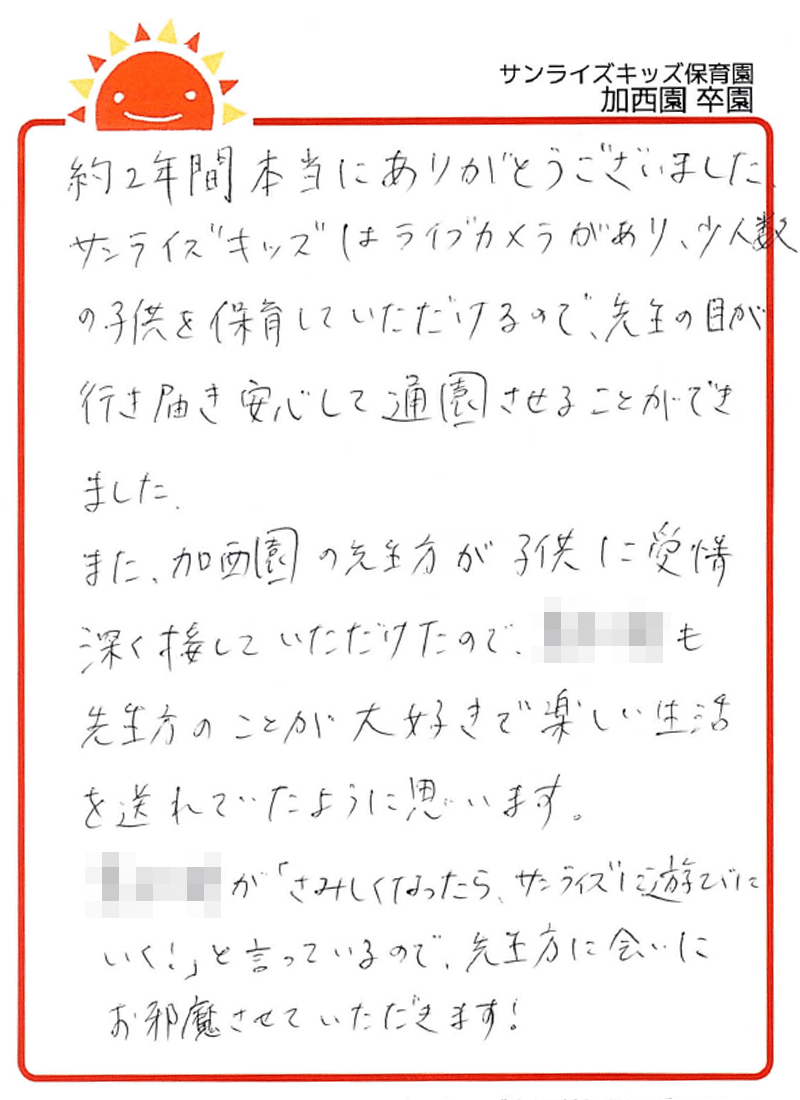 サンライズキッズ保育園
加西園 卒園
約2年間本当にありがとうございました。
サンライズキッズはライブカメラがあり、少人数
の子供を保育していただけるので、先生の目が
行き届き安心して通園させることができ
ました。
また、加西園の先生方が子供に愛情
深く接していただけたので、も
先生方のことが大好きで楽しい生活
を送れていたように思います。
が「さみしくなったら、サンライズに遊びに
いく!」と言っているので、先生方に会いに
お邪魔させていただきます!